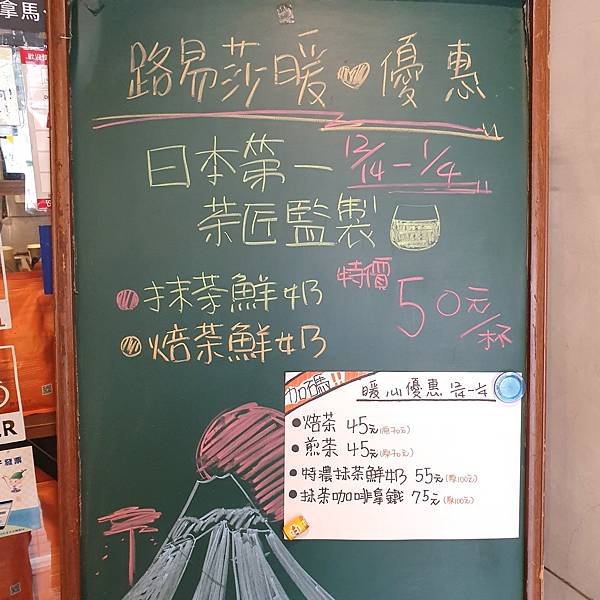 拿馬
路易莎暖♥優惠
日本第一 12/14-1/4
茶匠監製
●抹茶鮮奶 特價
●焙茶鮮奶 50元/杯
加碼!! 暖心優惠 12/14-1/4
●焙茶 45元(原70元)
●煎茶 45元(原70元)
●特濃抹茶鮮奶 55元(原100元)
●抹茶咖啡拿鐵 75元(原100元)
ER
發票